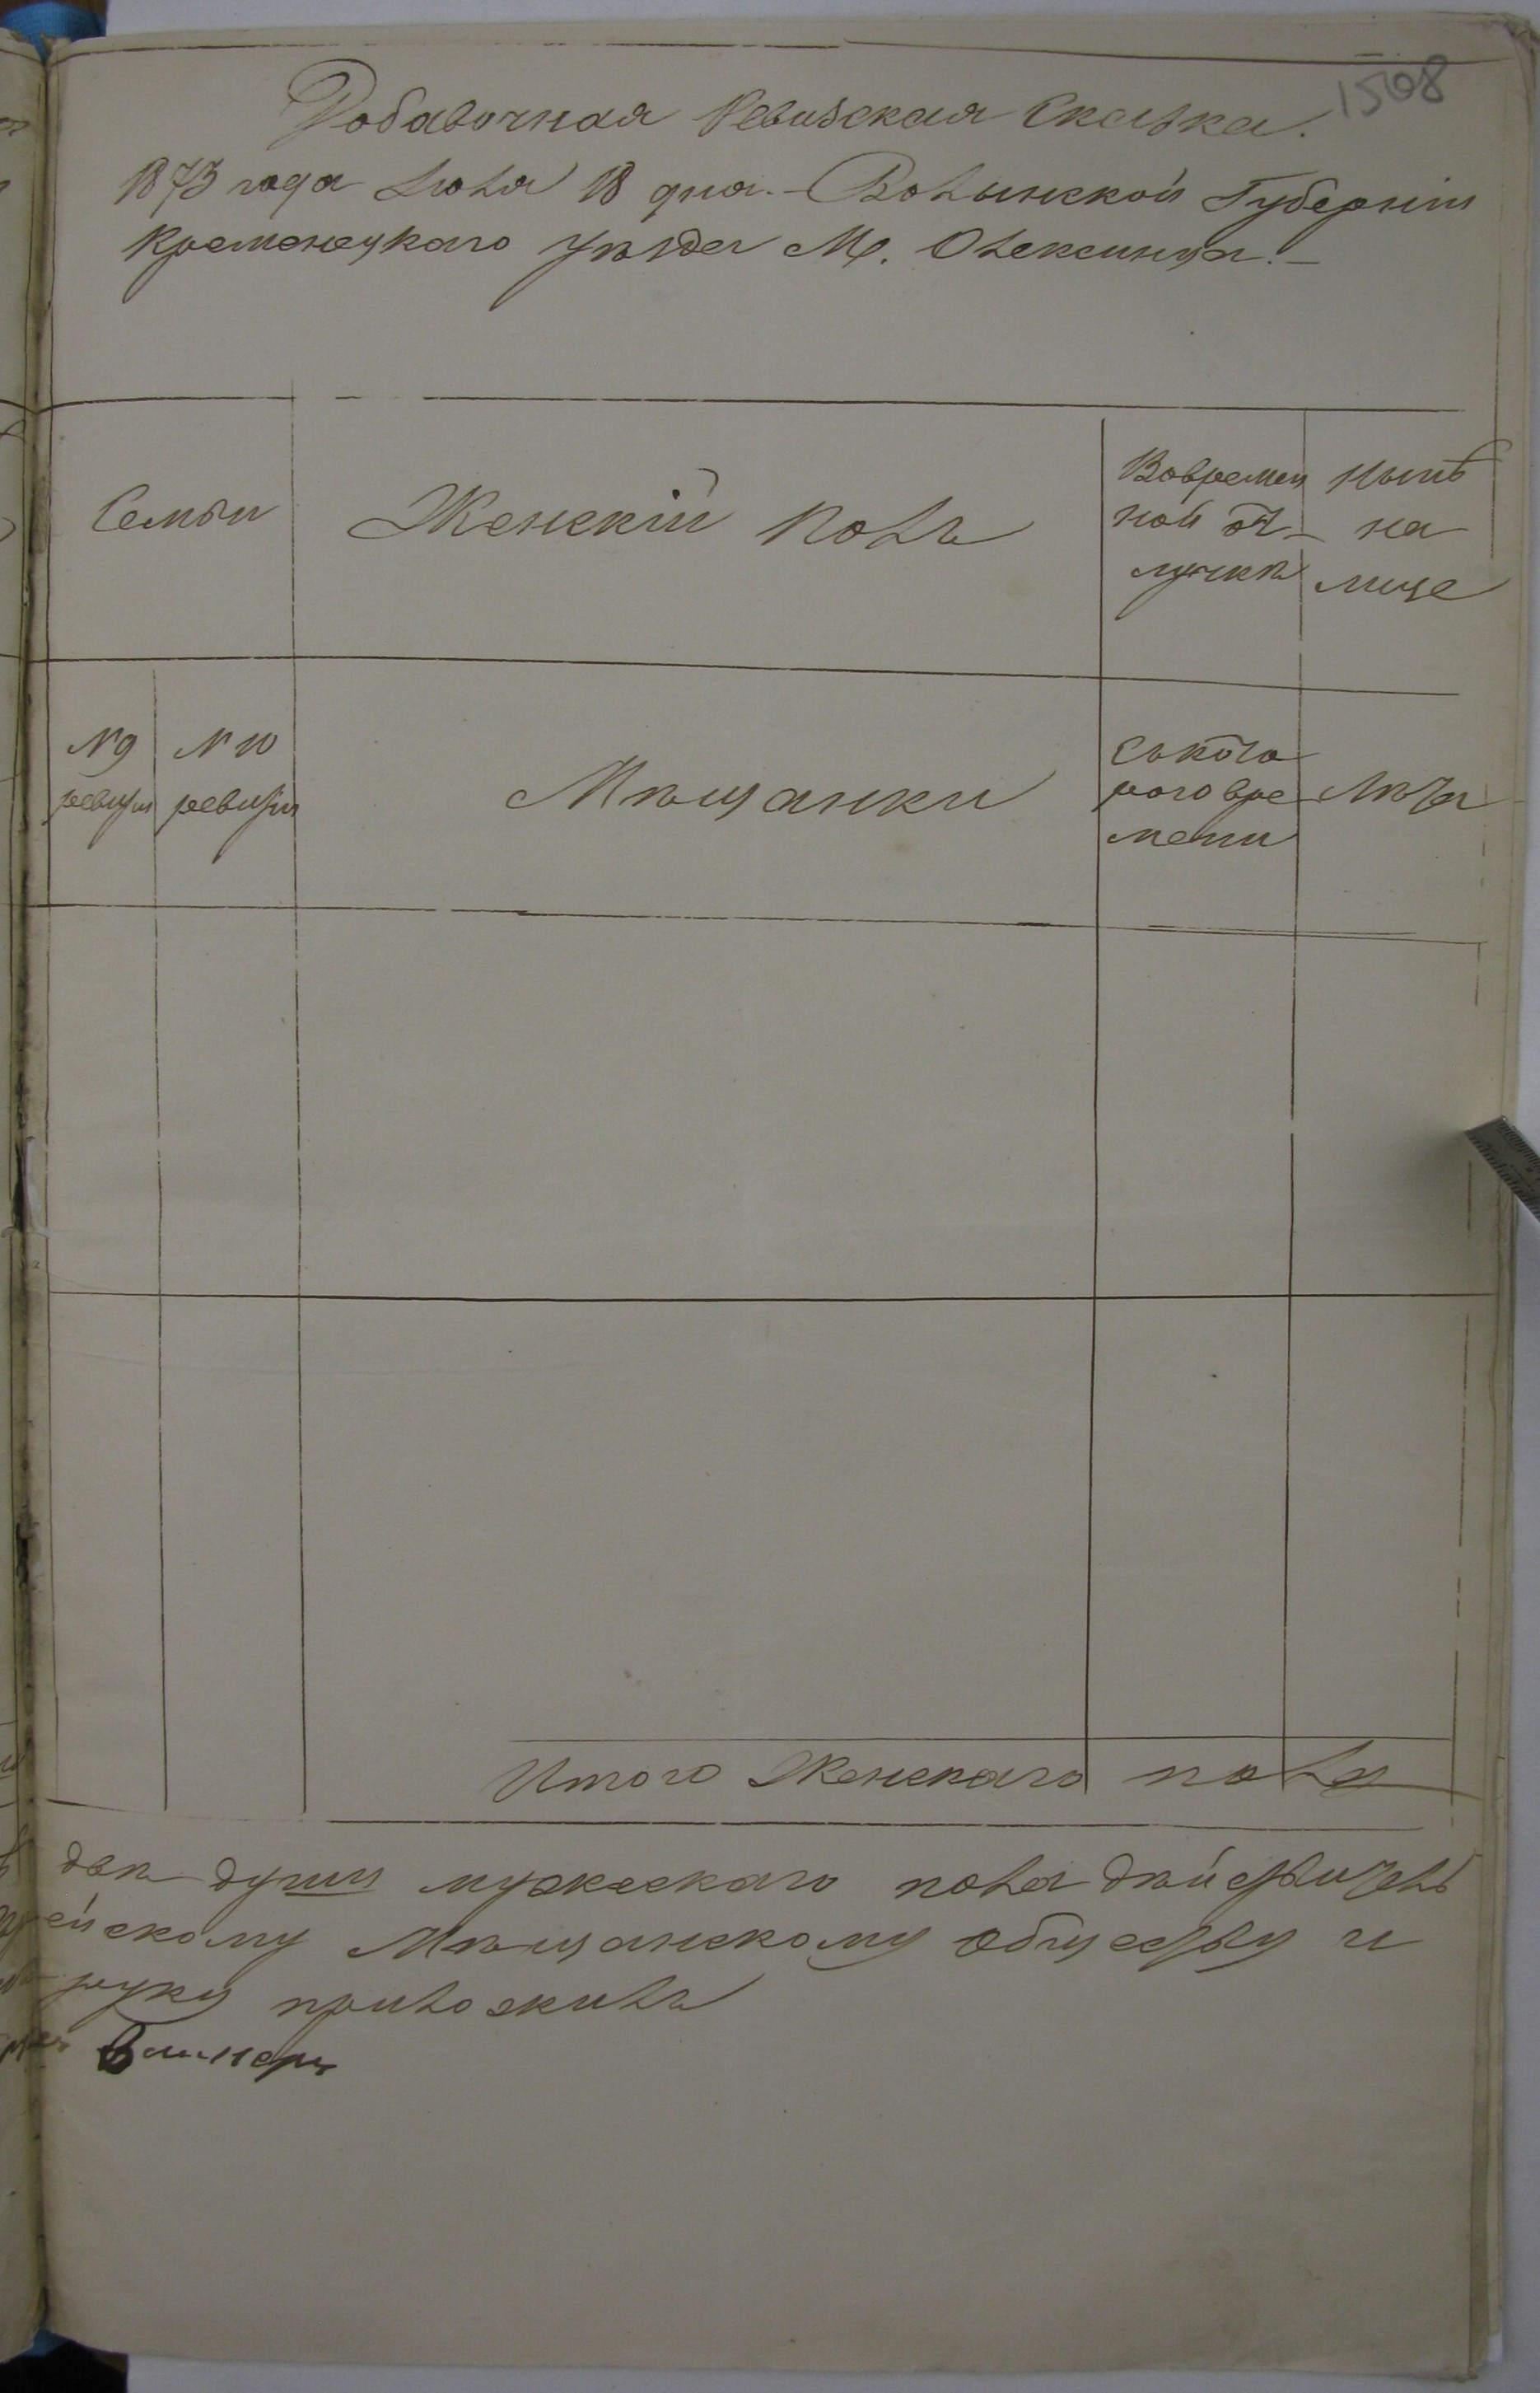 1508
Добавочная Ревизская Сказка.
1873 года Июля 18 дня. – Волынской Губерніи
Кременецкаго уѣзда М. Олексинца. –
Семьи
Женскій полъ
Вовремен
ной от-
лучкѣ
Нынѣ
на
лице
№ 9
ревизіи
№ 10
ревизіи
Мѣщанки
Съкото
рого вре
мени
Лѣта
Итого Женскаго пола
двѣ души мужескаго пола дѣйствитель
ейскому Мѣщанскому обществу и
руку приложилъ